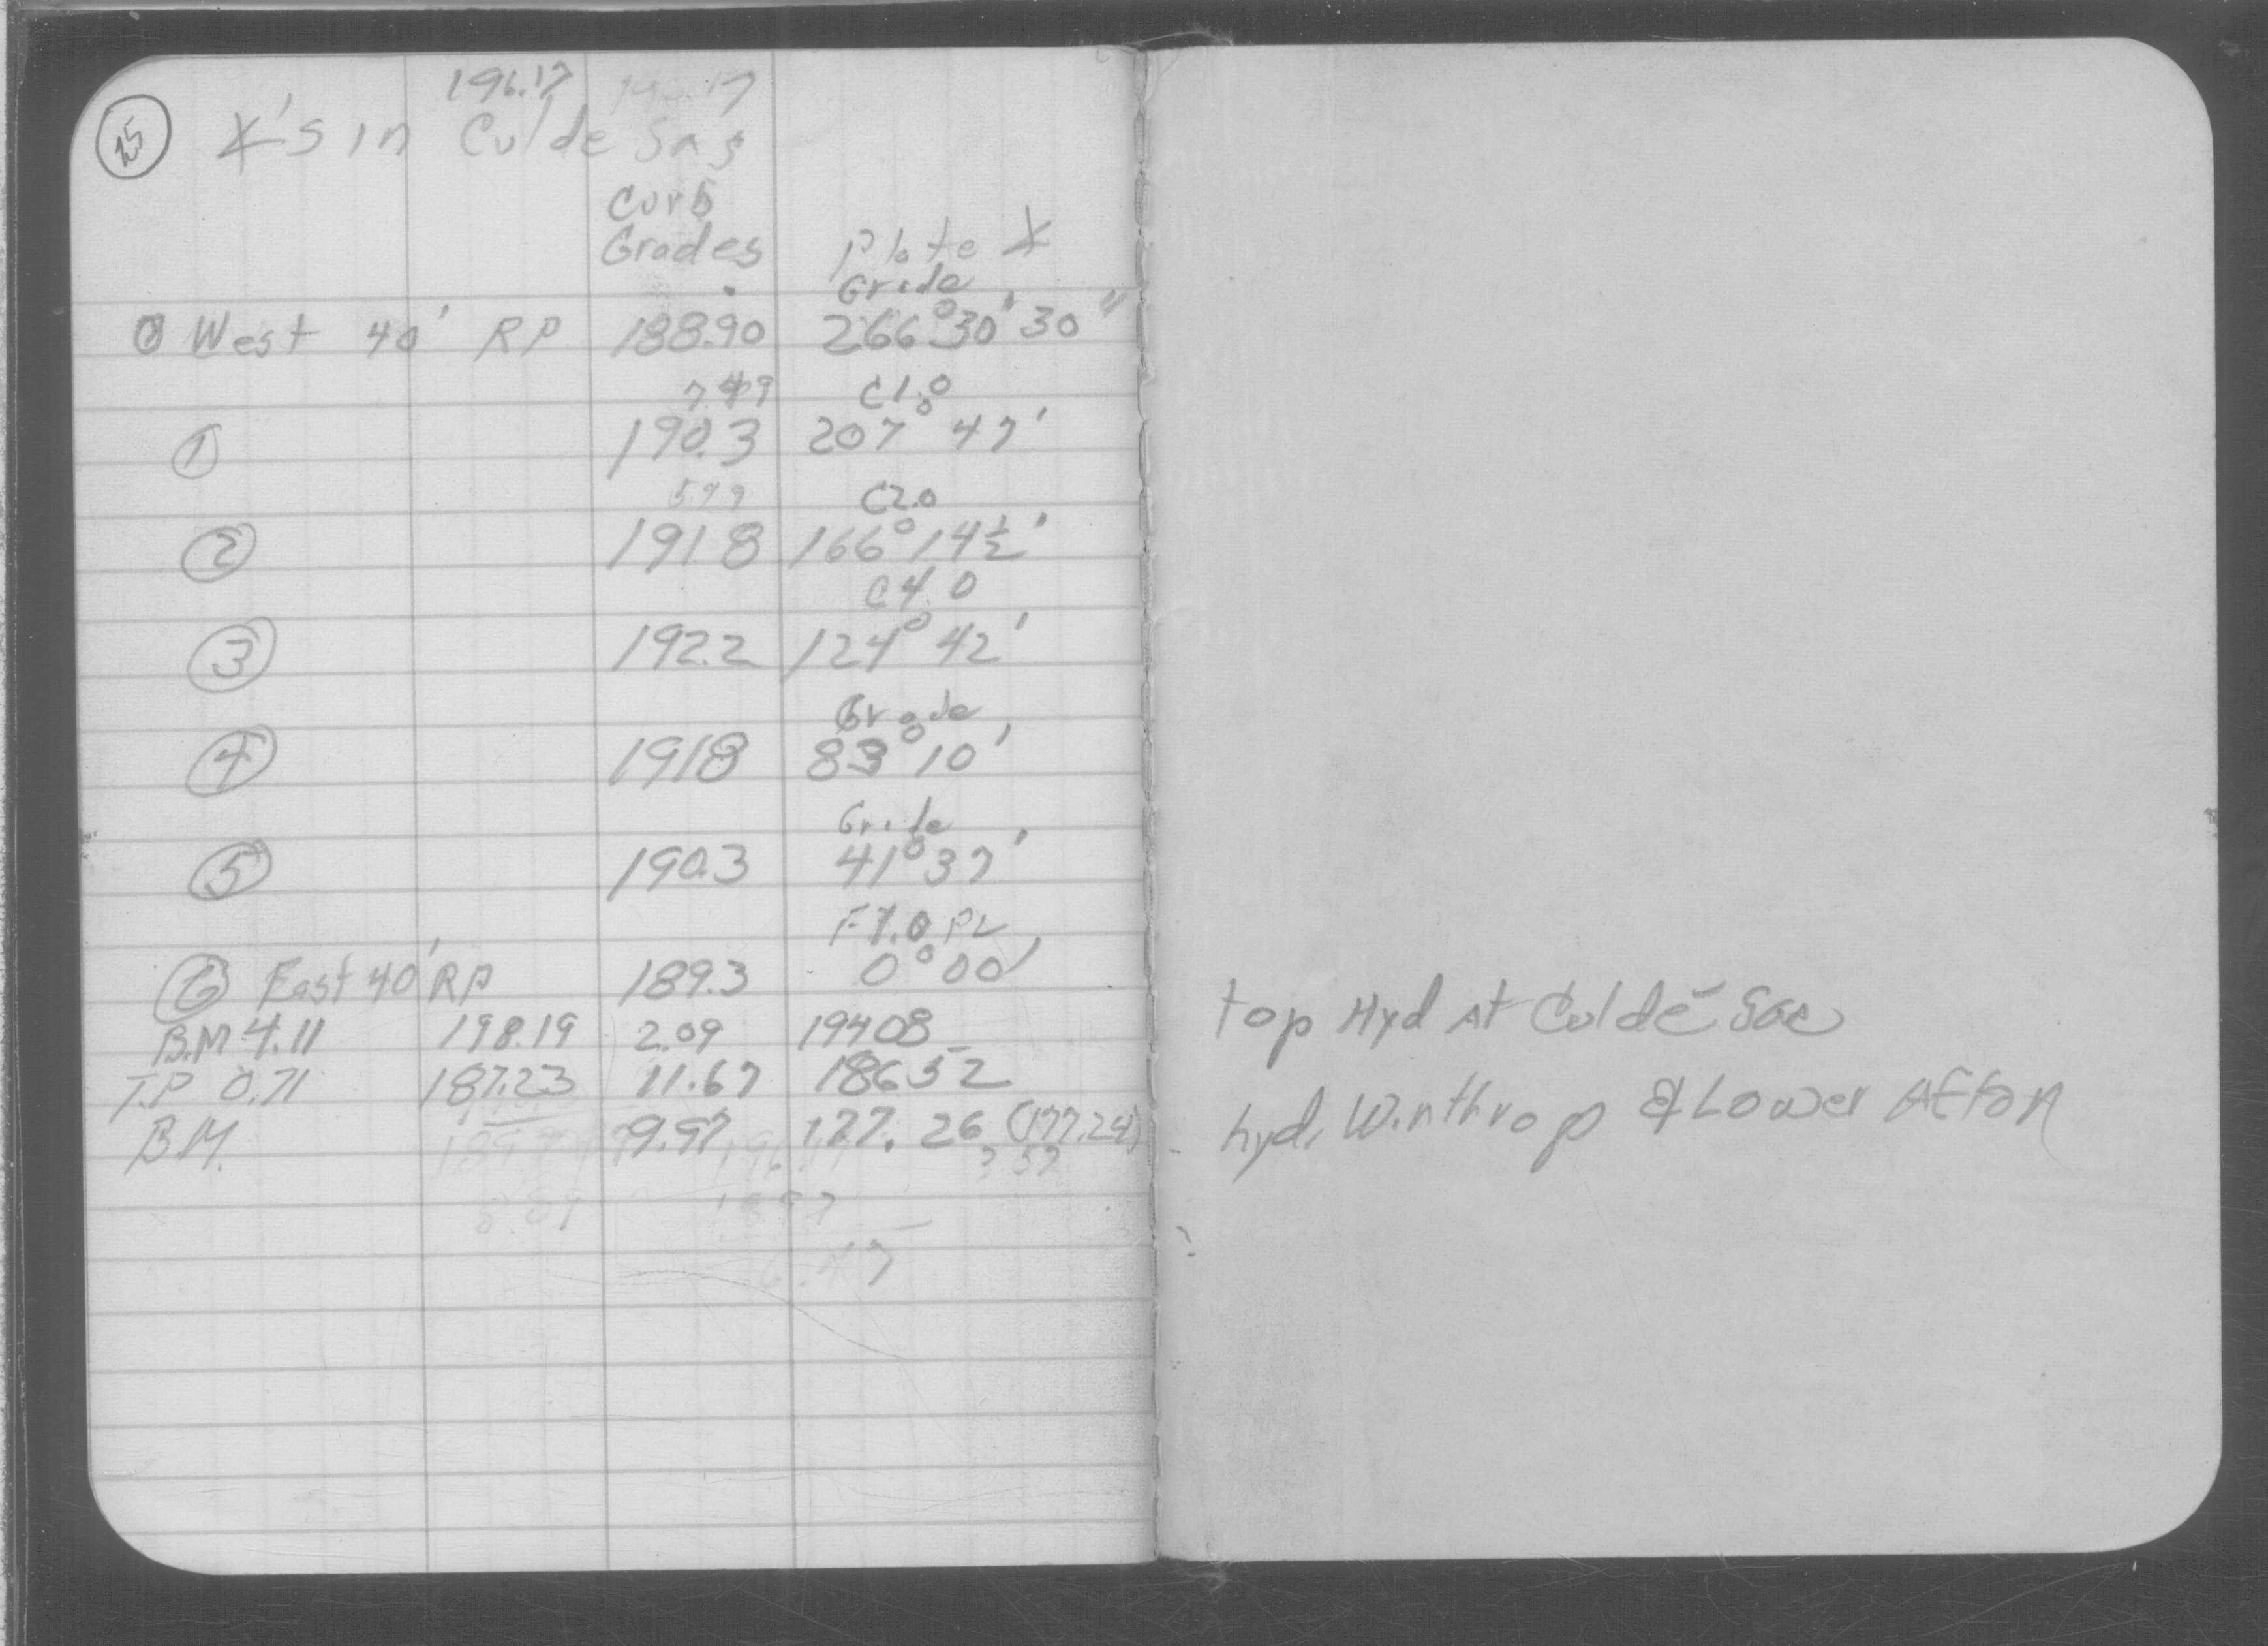 196.17 196.17
25 X's in Cul de Sa's
Curb
Grades Plate X
Grade
0 West 40' RP 188.90 266°30'30"
7.49 C1.0
1 190.3 207°47'
5.99 C2.0
2 191.8 166°14½'
C4.0
3 192.2 124°42'
Grade
4 191.8 83°10'
Grade
5 190.3 41°37'
F1.0 PL
6 East 40' RP 189.3 0°00'
B.M 4.11 198.19 2.09 194.08 top Hyd At Cul de Sac
T.P 0.71 187.23 11.67 186.52
B.M. 9.97 177.26 (177.24) hyd. Winthrop & Lower Afton
189.7 196.17 ? 57
8.89 189.7
6.47